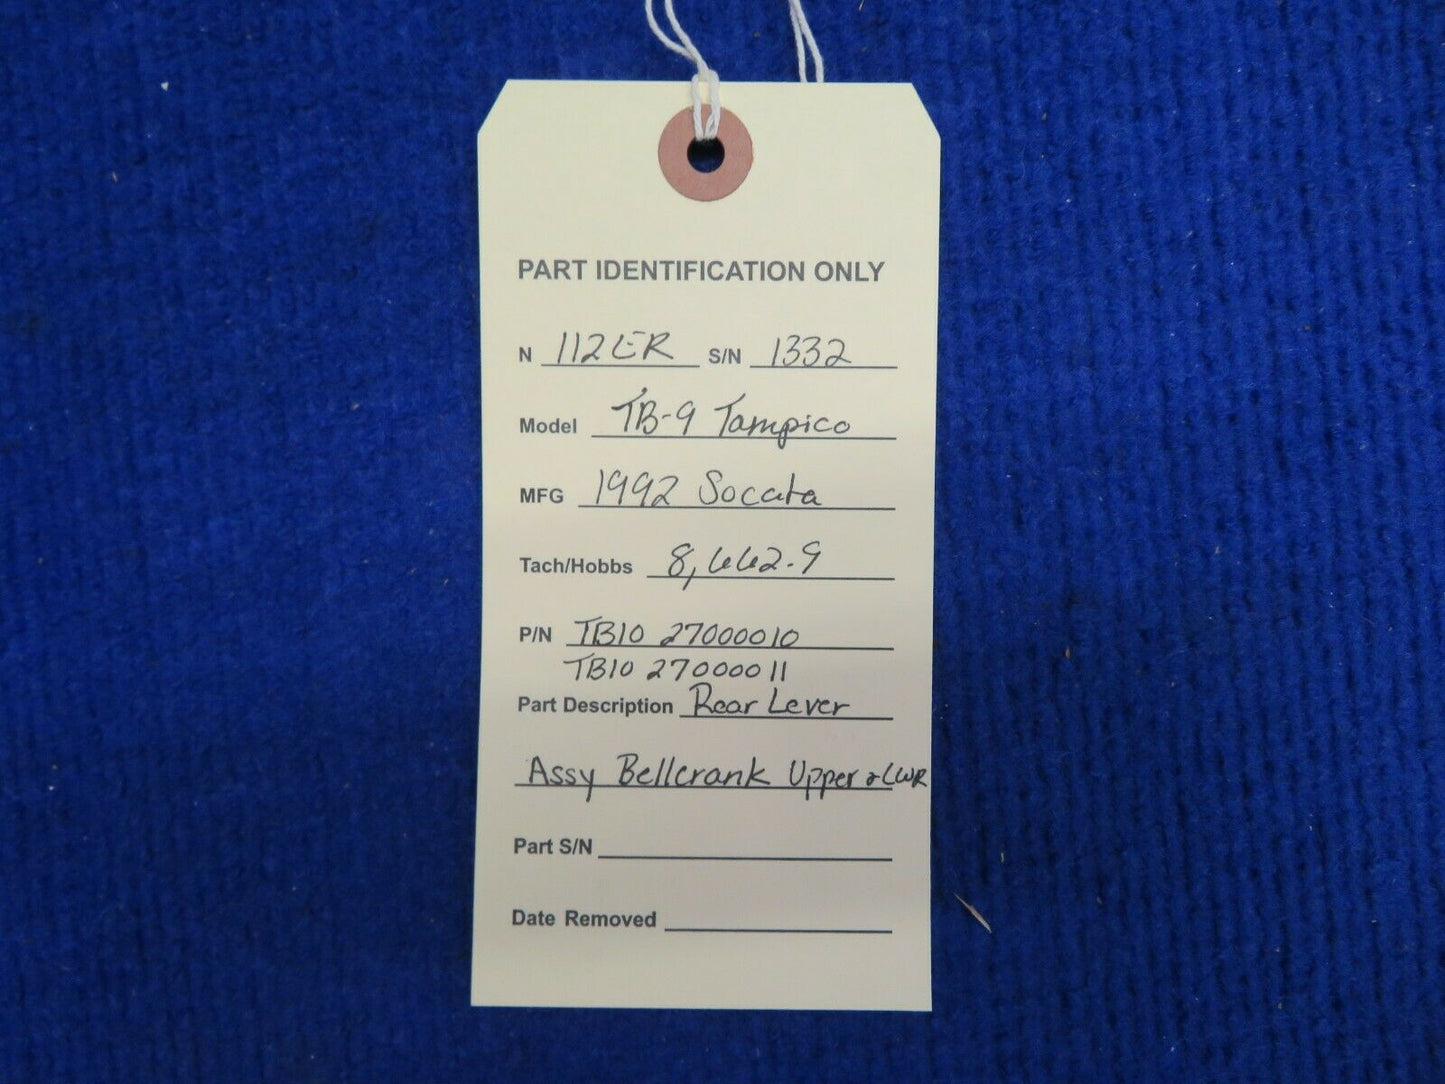 PART IDENTIFICATION ONLY
N 112ER S/N 1332
Model TB-9 Tampico
MFG 1992 Socata
Tach/Hobbs 8,662.9
P/N TB10 27000010
TB10 27000011
Part Description Rear Lever
Assy Bellcrank Upper & LWR
Part S/N
Date Removed